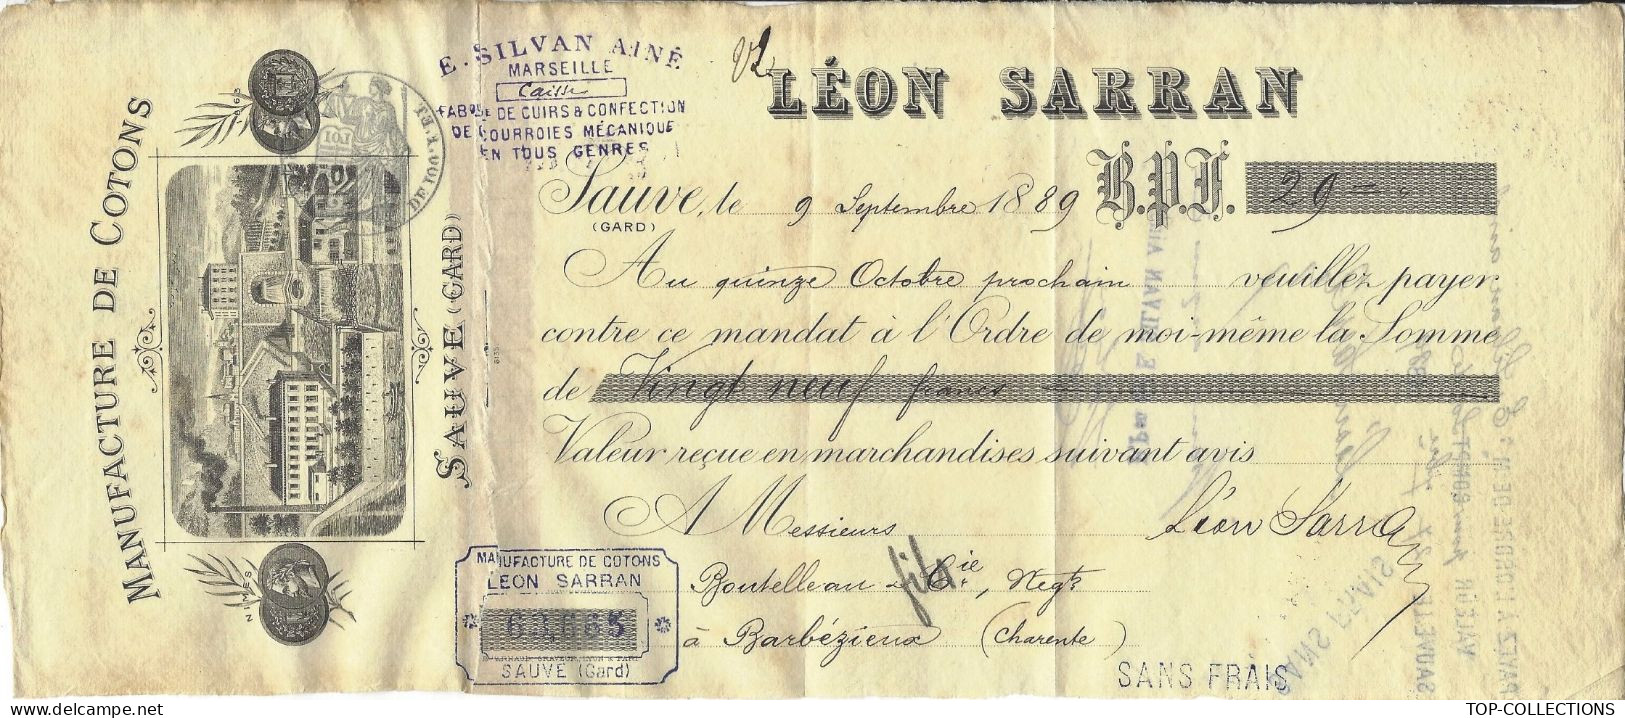 MANUFACTURE DE COTONS
SAUVE (GARD)
NIMES
E. SILVAN AINÉ
MARSEILLE
Caisse
FABQUE DE CUIRS & CONFECTION
DE COURROIES MÉCANIQUE
EN TOUS GENRES
LÉON SARRAN
Sauve, le 9 Septembre 1889 B.P.F. 29
(GARD)
Au quinze Octobre prochain veuillez payer
contre ce mandat à l'Ordre de moi-même la Somme
de Vingt neuf francs
Valeur reçue en marchandises suivant avis
A Messieurs
Léon Sarran
Boutelleau & Cie, Negts
à Barbézieux (Charente)
MANUFACTURE DE COTONS
LEON SARRAN
SAUVE (Gard)
SANS FRAIS
SANS FRAIS
TOP-COLLECTIONS
delcampe.net